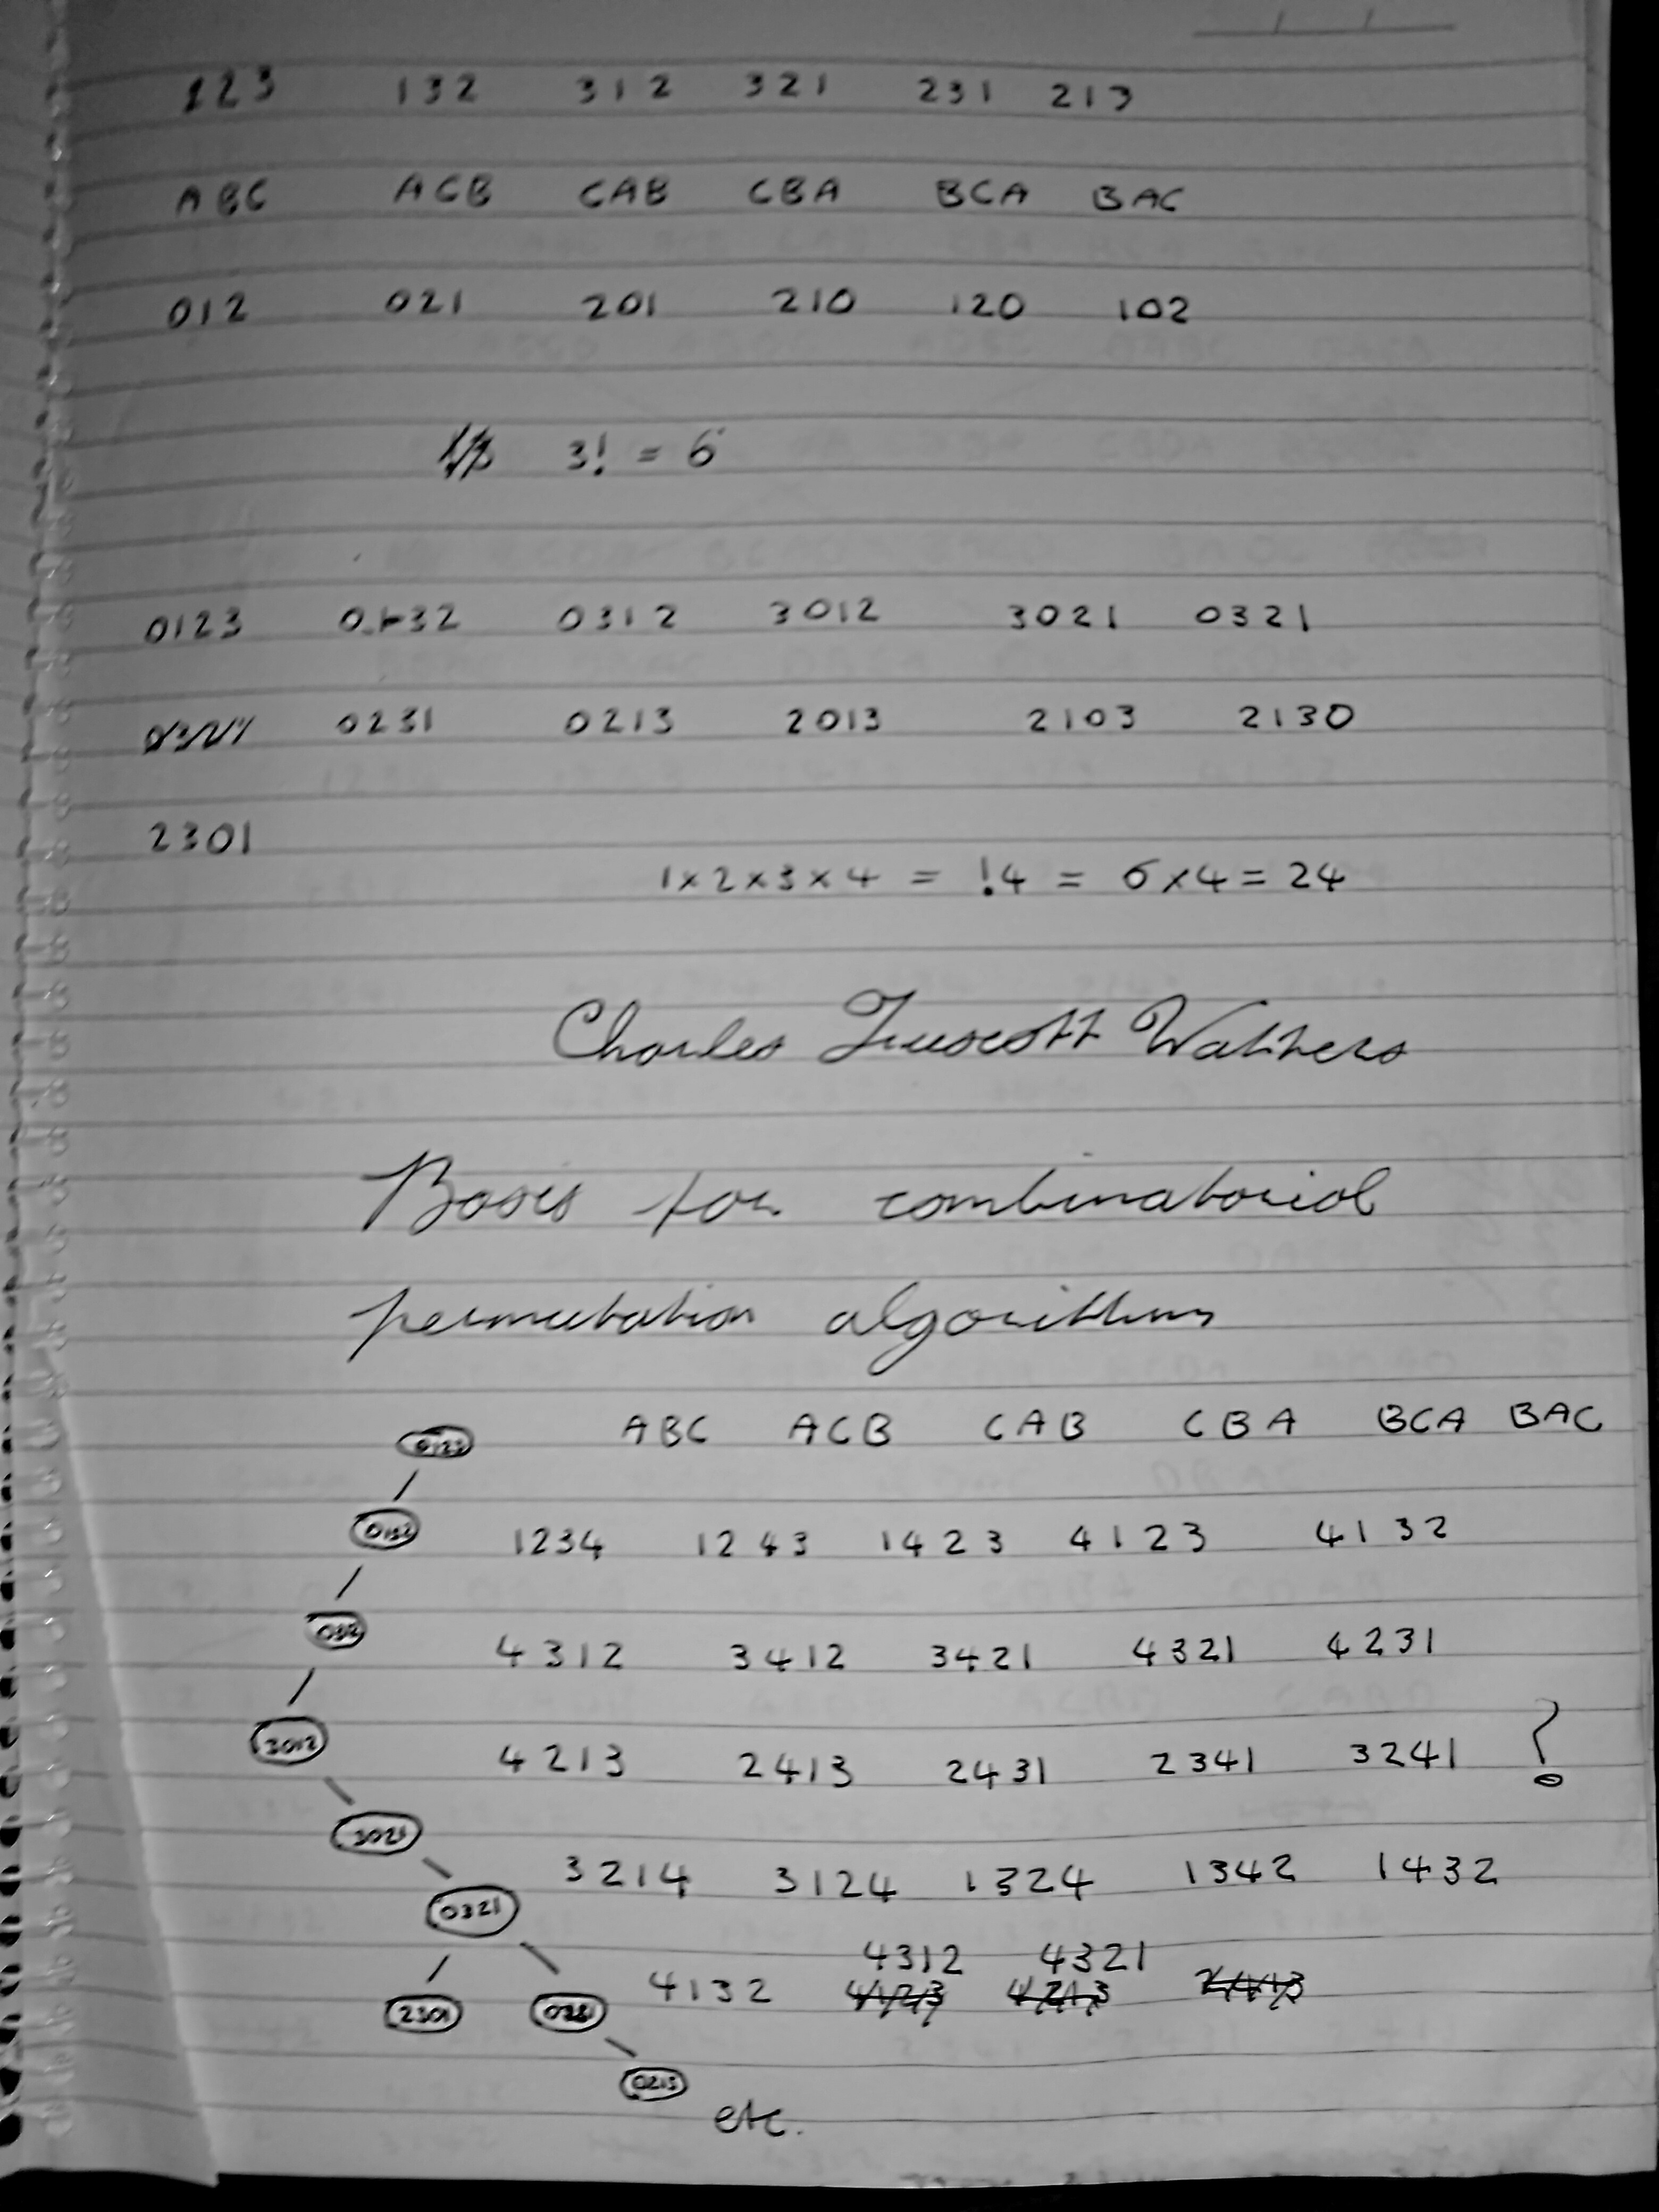 123 132 312 321 231 213
ABC ACB CAB CBA BCA BAC
012 021 201 210 120 102
3! = 6
0123 0132 0312 3012 3021 0321
0231 0213 2013 2103 2130
2301
1x2x3x4 = !4 = 6x4 = 24
Charles Truscott Watters
Basis for combinatorial
permutation algorithms
ABC ACB CAB CBA BCA BAC
0123
0132 1234 1243 1423 4123 4132
4312 3412 3421 4321 4231
3012 4213 2413 2431 2341 3241 ?
3021
3214 3124 1324 1342 1432
0321
4312 4321
2301 4132
0213
etc.